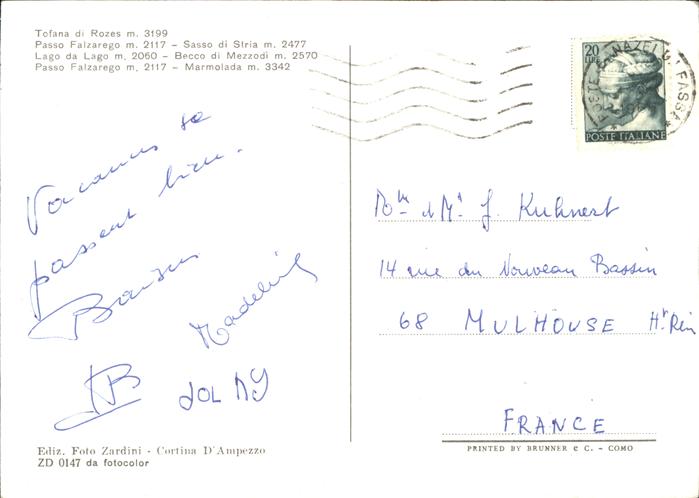 Tofana di Rozes m. 3199
Passo Falzarego m. 2117 – Sasso di Stria m. 2477
Lago da Lago m. 2060 – Becco di Mezzodi m. 2570
Passo Falzarego m. 2117 – Marmolada m. 3342
20
LIRE
POSTE ITALIANE
Vacances se
passent bien.
Baisers
Madeleine
Mme et Mr J. Kuhnert
14 rue du Nouveau Bassin
68 MULHOUSE Ht Rin
FRANCE
Ediz. Foto Zardini - Cortina D'Ampezzo
ZD 0147 da fotocolor
PRINTED BY BRUNNER & C. – COMO